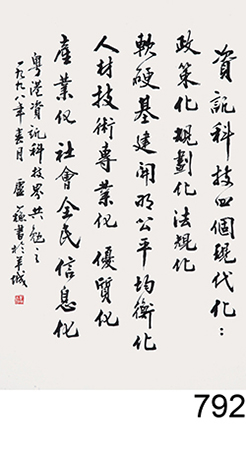 資訊科技四個現代化：
政策化規劃化法規化
軟硬基建開明公平均衡化
人材技術專業化優質化
產業化社會全民信息化
粵港資訊科技界共勉之
一九九八年春月 盧蘇書於羊城
792